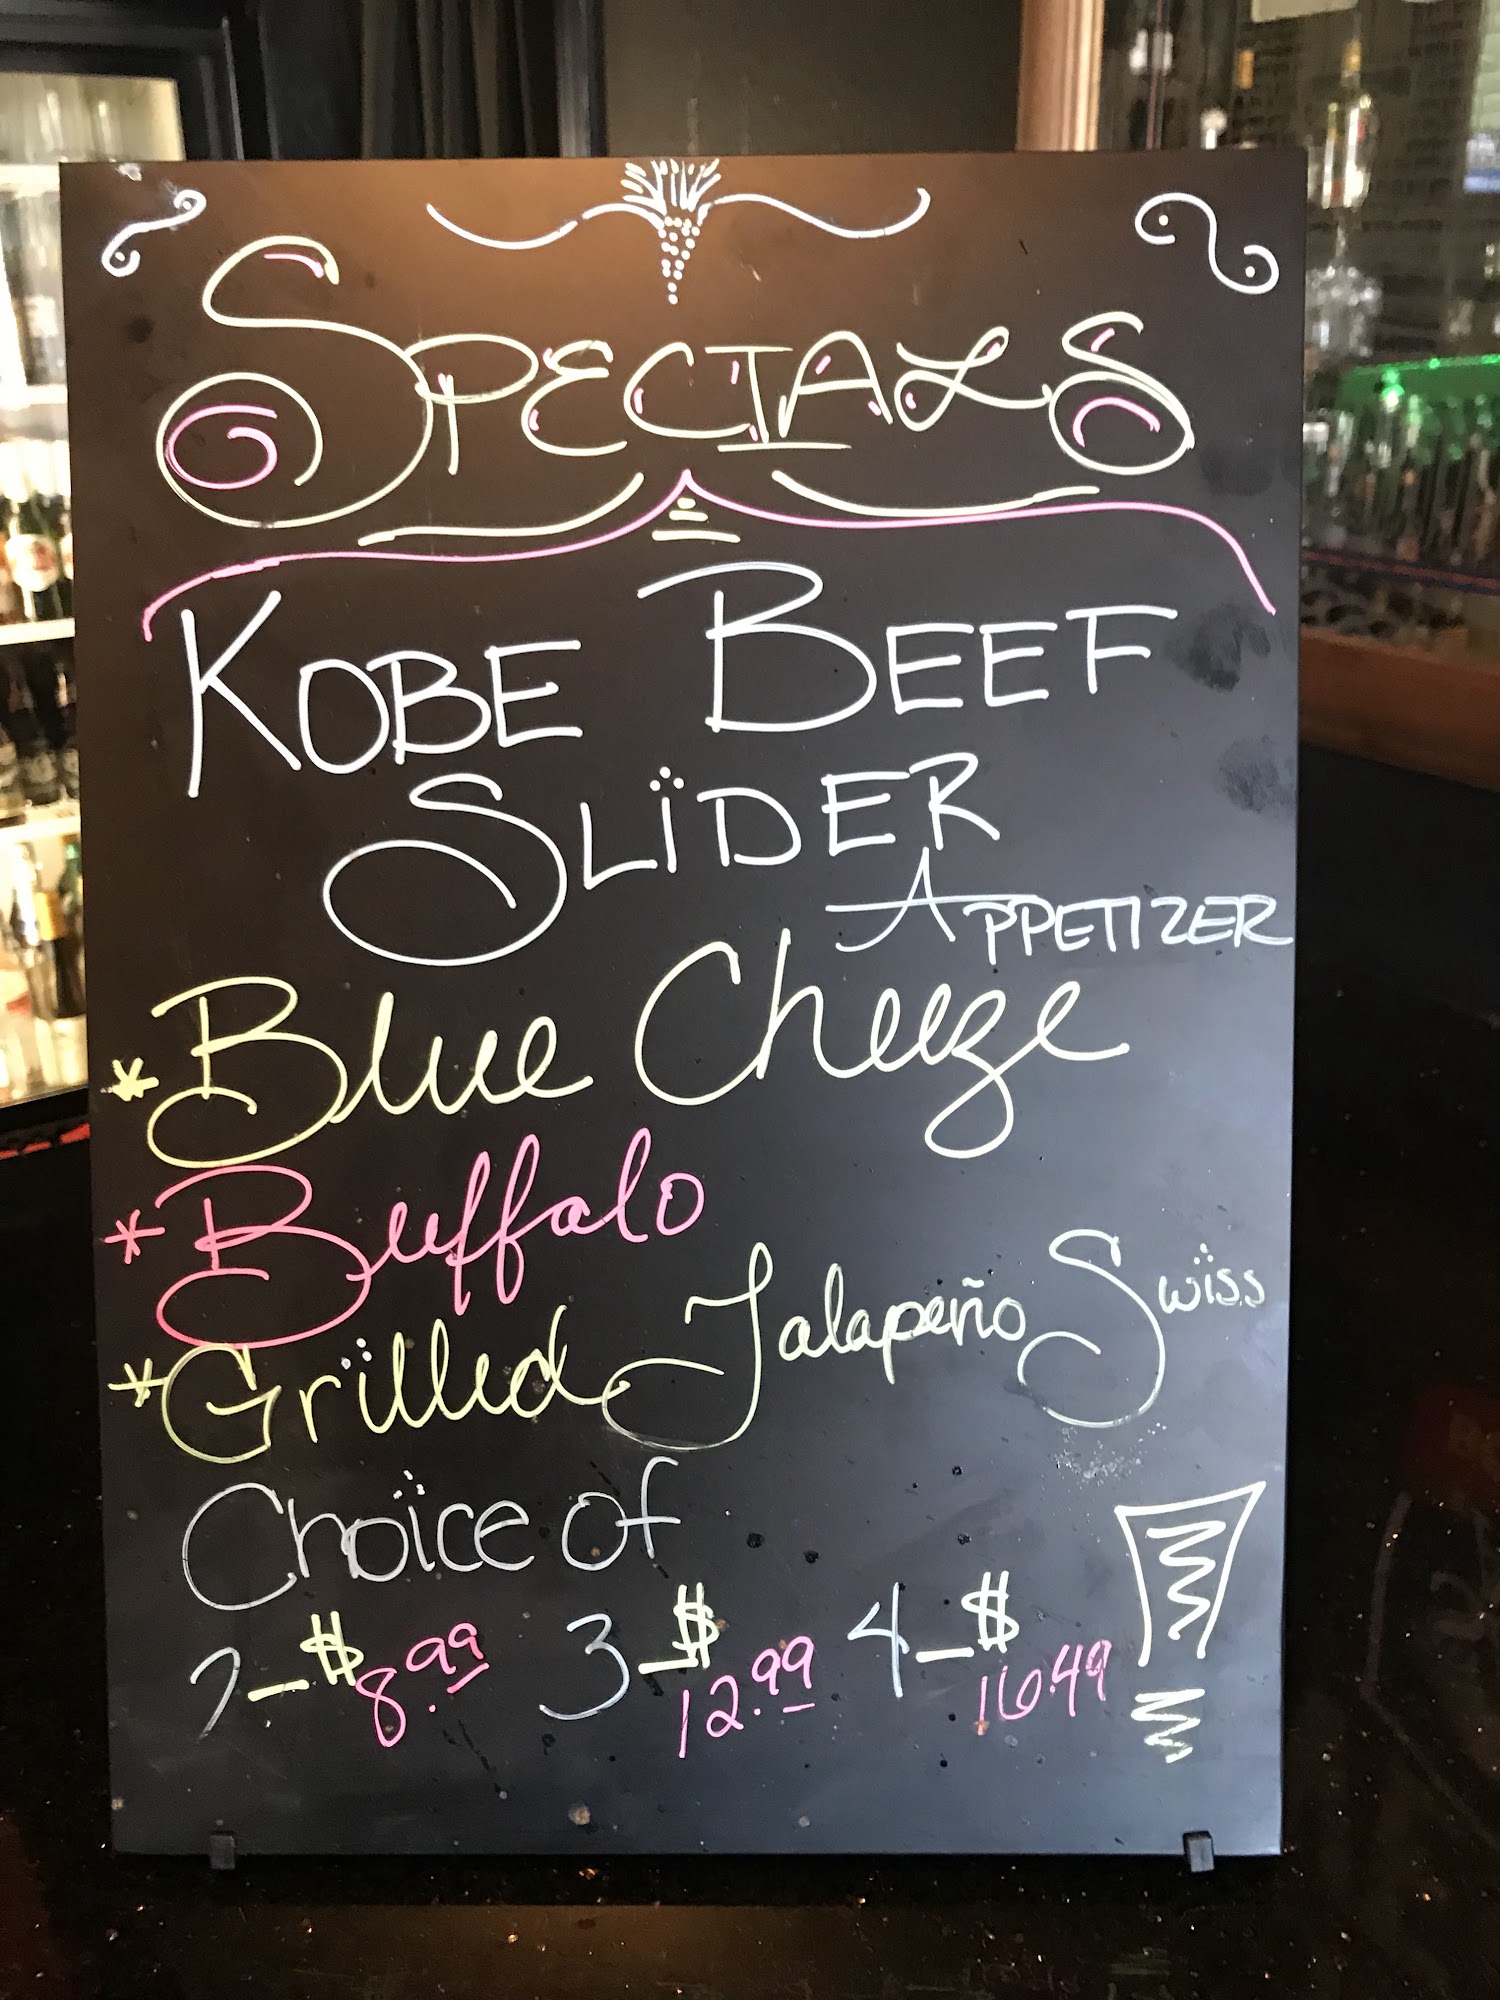 SPECIALS
KOBE BEEF
SLÏDER
APPETIZER
* Blue Cheeze
* Buffalo
* Grïlled Jalapeño Swïss
Choïce of
2 - $8.99 3 - $12.99 4 - $16.49